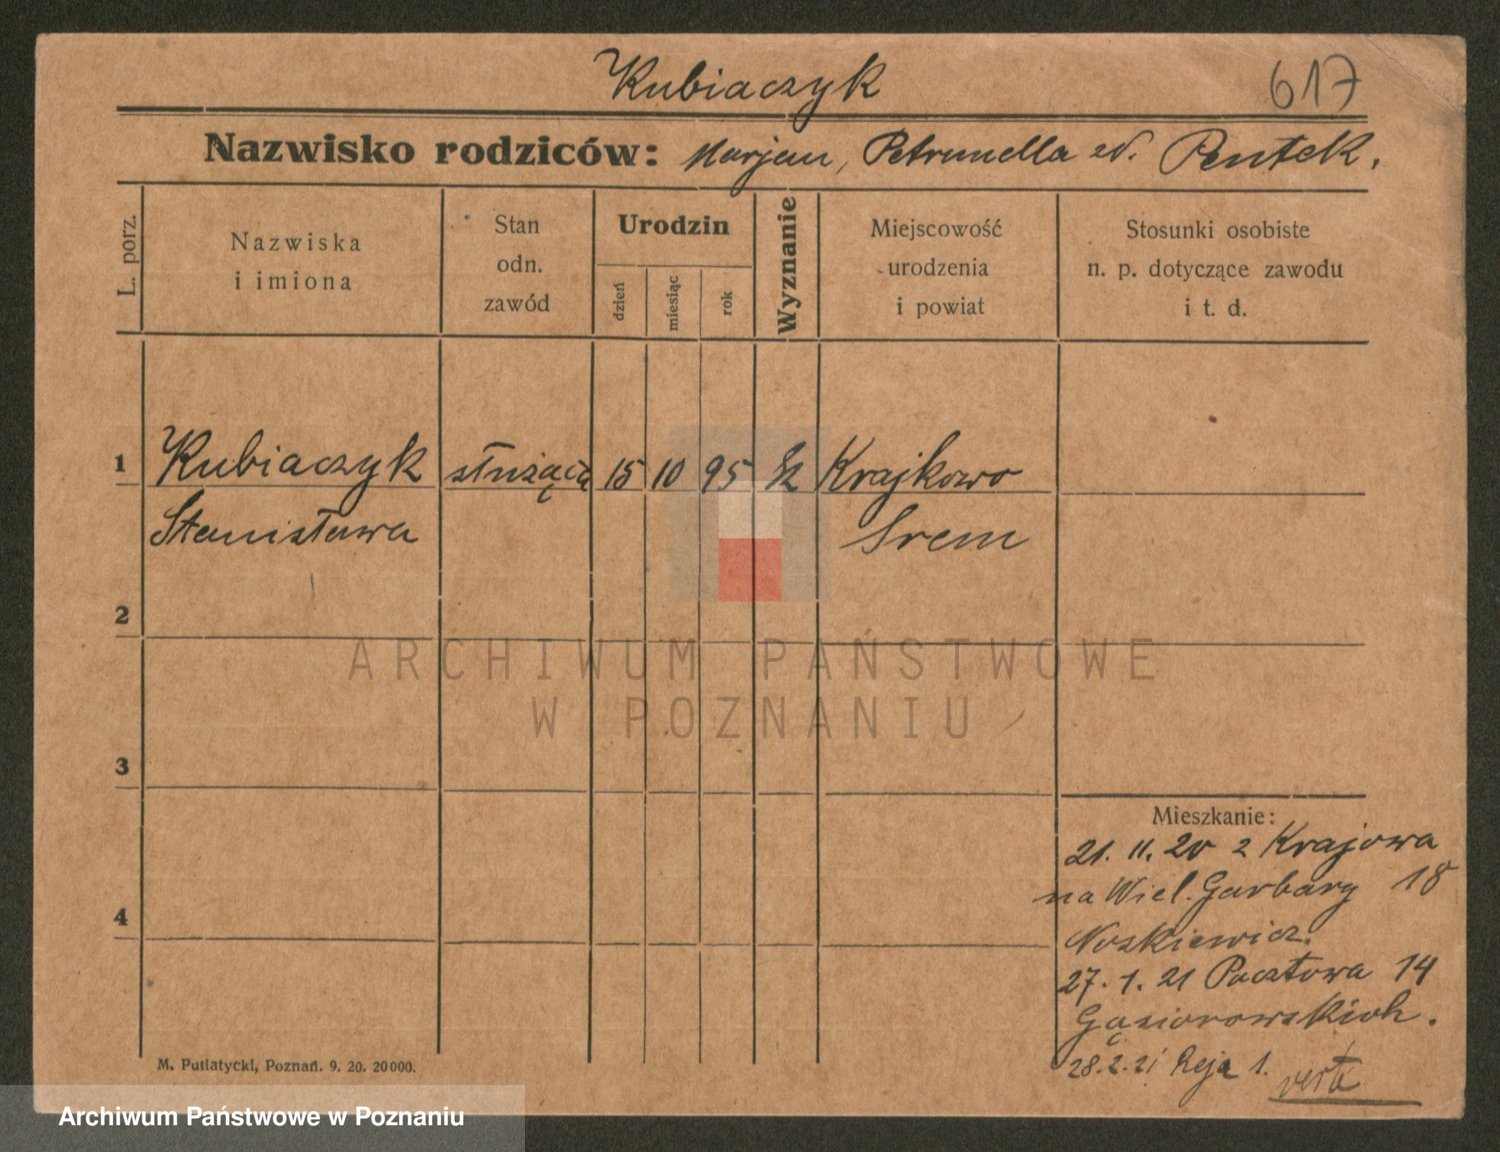 Kubiaczyk
617
Nazwisko rodziców: Marjan, Petrunella zd. Pentek.
L. porz.
Nazwiska
i imiona
Stan
odn.
zawód
Urodzin
dzień
miesiąc
rok
Wyznanie
Miejscowość
urodzenia
i powiat
Stosunki osobiste
n. p. dotyczące zawodu
i t. d.
1 Kubiaczyk służąca 15 10 95 Krajkowo
Stanisława Srem
2
3
4
Mieszkanie:
21. 11. 20 z Krajowa
na Wiel. Garbary 18
Noskiewicz.
27. 1. 21 Pocztowa 14
Gąsiorowskich.
28. 2. 21 Reja 1. verte
M. Putiatycki, Poznań. 9. 20. 20000.
ARCHIWUM PAŃSTWOWE
W POZNANIU
Archiwum Państwowe w Poznaniu